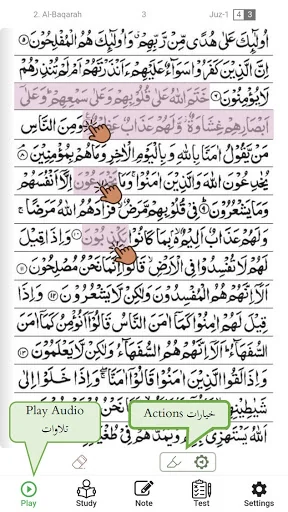 2. Al-Baqarah 3 Juz-1 4 3
اُولٰٓئِكَ عَلٰى هُدًى مِّنْ رَّبِّهِمْ وَاُولٰٓئِكَ هُمُ الْمُفْلِحُوْنَ ۵
اِنَّ الَّذِيْنَ كَفَرُوْا سَوَآءٌ عَلَيْهِمْ ءَاَنْذَرْتَهُمْ اَمْ لَمْ تُنْذِرْهُمْ
لَا يُؤْمِنُوْنَ ۶ خَتَمَ اللّٰهُ عَلٰى قُلُوْبِهِمْ وَعَلٰى سَمْعِهِمْ ؕ وَعَلٰٓى
اَبْصَارِهِمْ غِشَاوَةٌ وَّلَهُمْ عَذَابٌ وَمِنَ النَّاسِ
مَنْ يَّقُوْلُ اٰمَنَّا بِاللّٰهِ وَبِالْيَوْمِ الْاٰخِرِ وَمَا هُمْ بِمُؤْمِنِيْنَ ۸
يُخٰدِعُوْنَ اللّٰهَ وَالَّذِيْنَ اٰمَنُوْا ۚ وَمَا يَخْدَعُوْنَ اِلَّاۤ اَنْفُسَهُمْ
وَمَا يَشْعُرُوْنَ ۹ فِيْ قُلُوْبِهِمْ مَّرَضٌ فَزَادَهُمُ اللّٰهُ مَرَضًا ۚ
وَلَهُمْ عَذَابٌ اَلِيْمٌۢ بِمَا كَانُوْا يَكْذِبُوْنَ ۱۰ وَاِذَا قِيْلَ
لَهُمْ لَا تُفْسِدُوْا فِي الْاَرْضِ قَالُوْٓا اِنَّمَا نَحْنُ مُصْلِحُوْنَ ۱۱
اَلَاۤ اِنَّهُمْ هُمُ الْمُفْسِدُوْنَ وَلٰكِنْ لَّا يَشْعُرُوْنَ ۱۲ وَاِذَا
قِيْلَ لَهُمْ اٰمِنُوْا كَمَاۤ اٰمَنَ النَّاسُ قَالُوْٓا اَنُؤْمِنُ كَمَاۤ اٰمَنَ
السُّفَهَآءُ ؕ اَلَاۤ اِنَّهُمْ هُمُ السُّفَهَآءُ وَلٰكِنْ لَّا يَعْلَمُوْنَ ۱۳
وَاِذَا لَقُوا الَّذِيْنَ اٰمَنُوْا قَالُوْٓا اٰمَنَّا ۖ وَاِذَا خَلَوْا اِلٰى
شَيٰطِيْنِهِمْ نَحْنُ
اَللّٰهُ يَسْتَهْزِئُ بِهِمْ وَيَمُدُّهُمْ فِيْ طُغْيَانِهِمْ
Play Audio
تلاوات
Actions خیارات
Play Study Note Test Settings